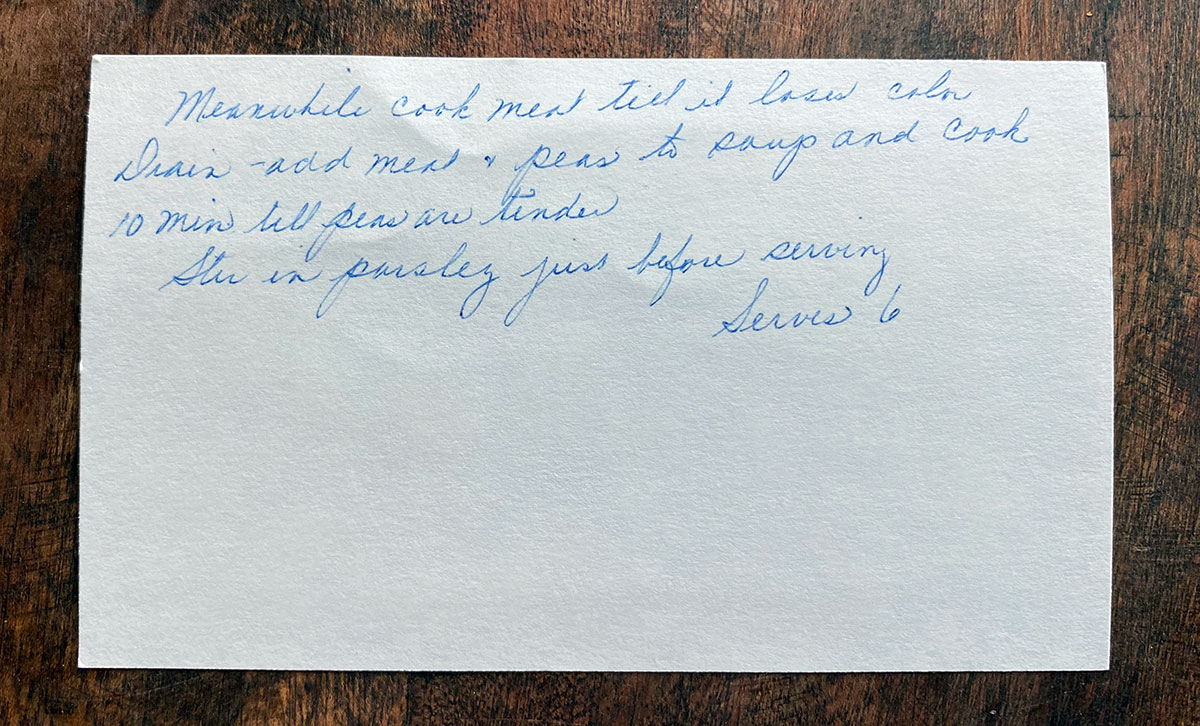 Meanwhile cook meat till it loses color
Drain - add meat & peas to soup and cook
10 min till peas are tender
Stir in parsley just before serving
Serves 6